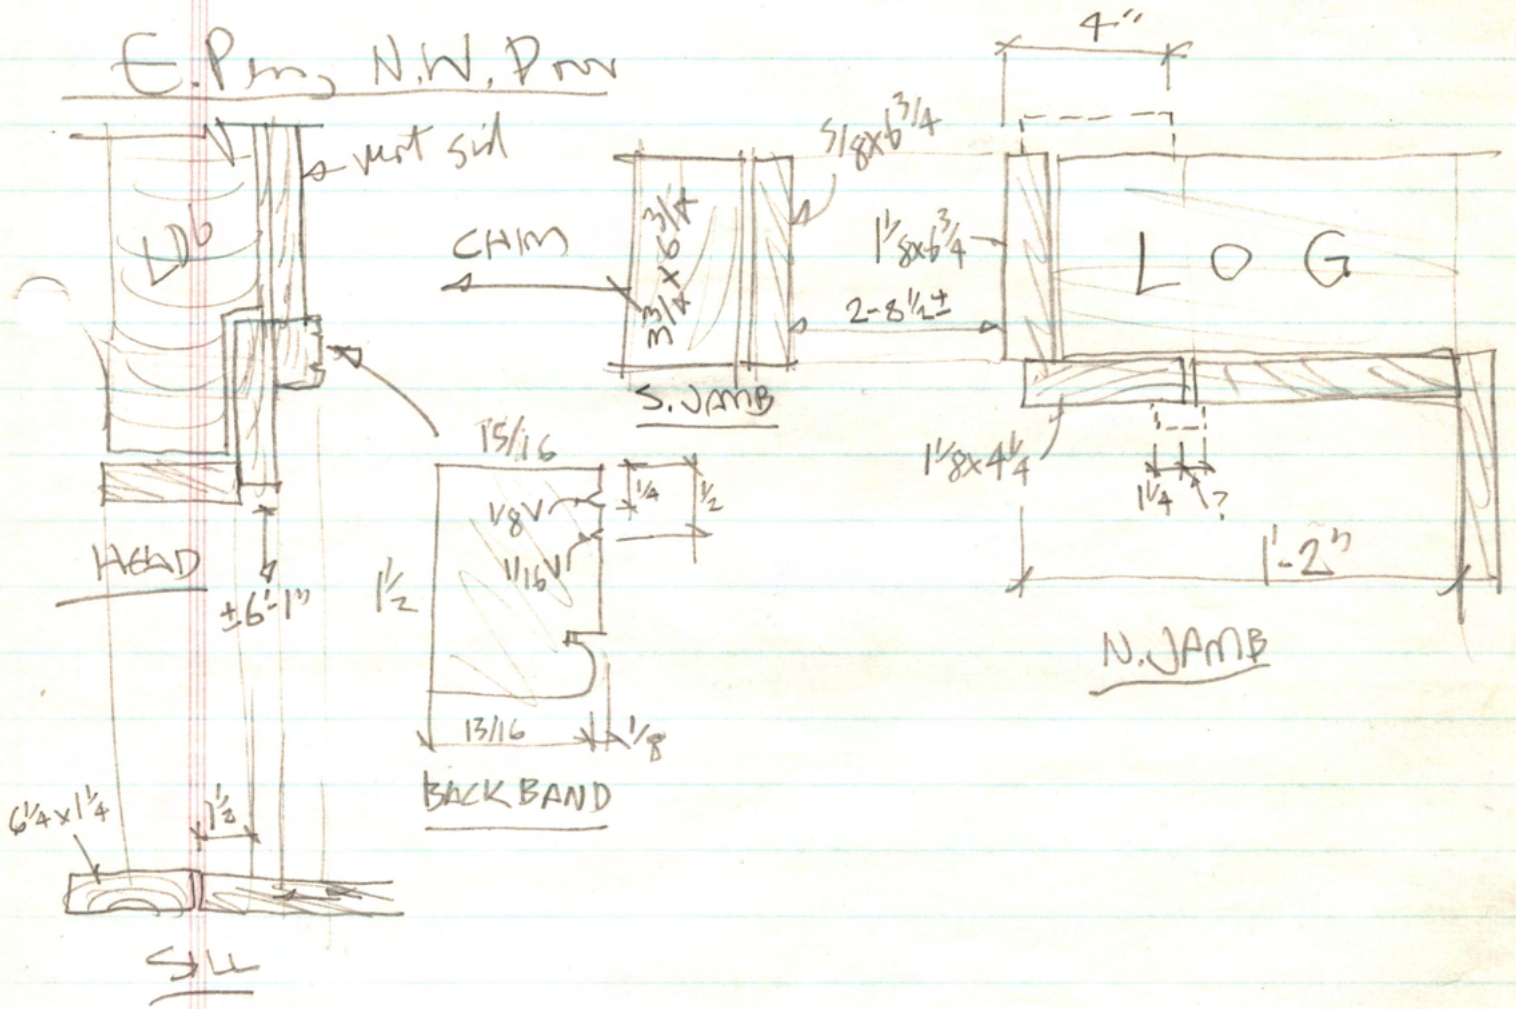 N.W. Door
vert sid
LOG
HEAD
±6'-1"
6 1/4 x 1 1/4
1 1/2
SILL
CHIM
3 3/4 x 6 3/4
5/8 x 6 3/4
S. JAMB
2-8 1/2 ±
15/16
1/8 V
1/16 V
1/4
1/2
1 1/2
13/16
1/8
BACK BAND
4"
1 1/8 x 6 3/4
LOG
1 1/8 x 4 1/4
1 1/4
?
1'-2"
N. JAMB